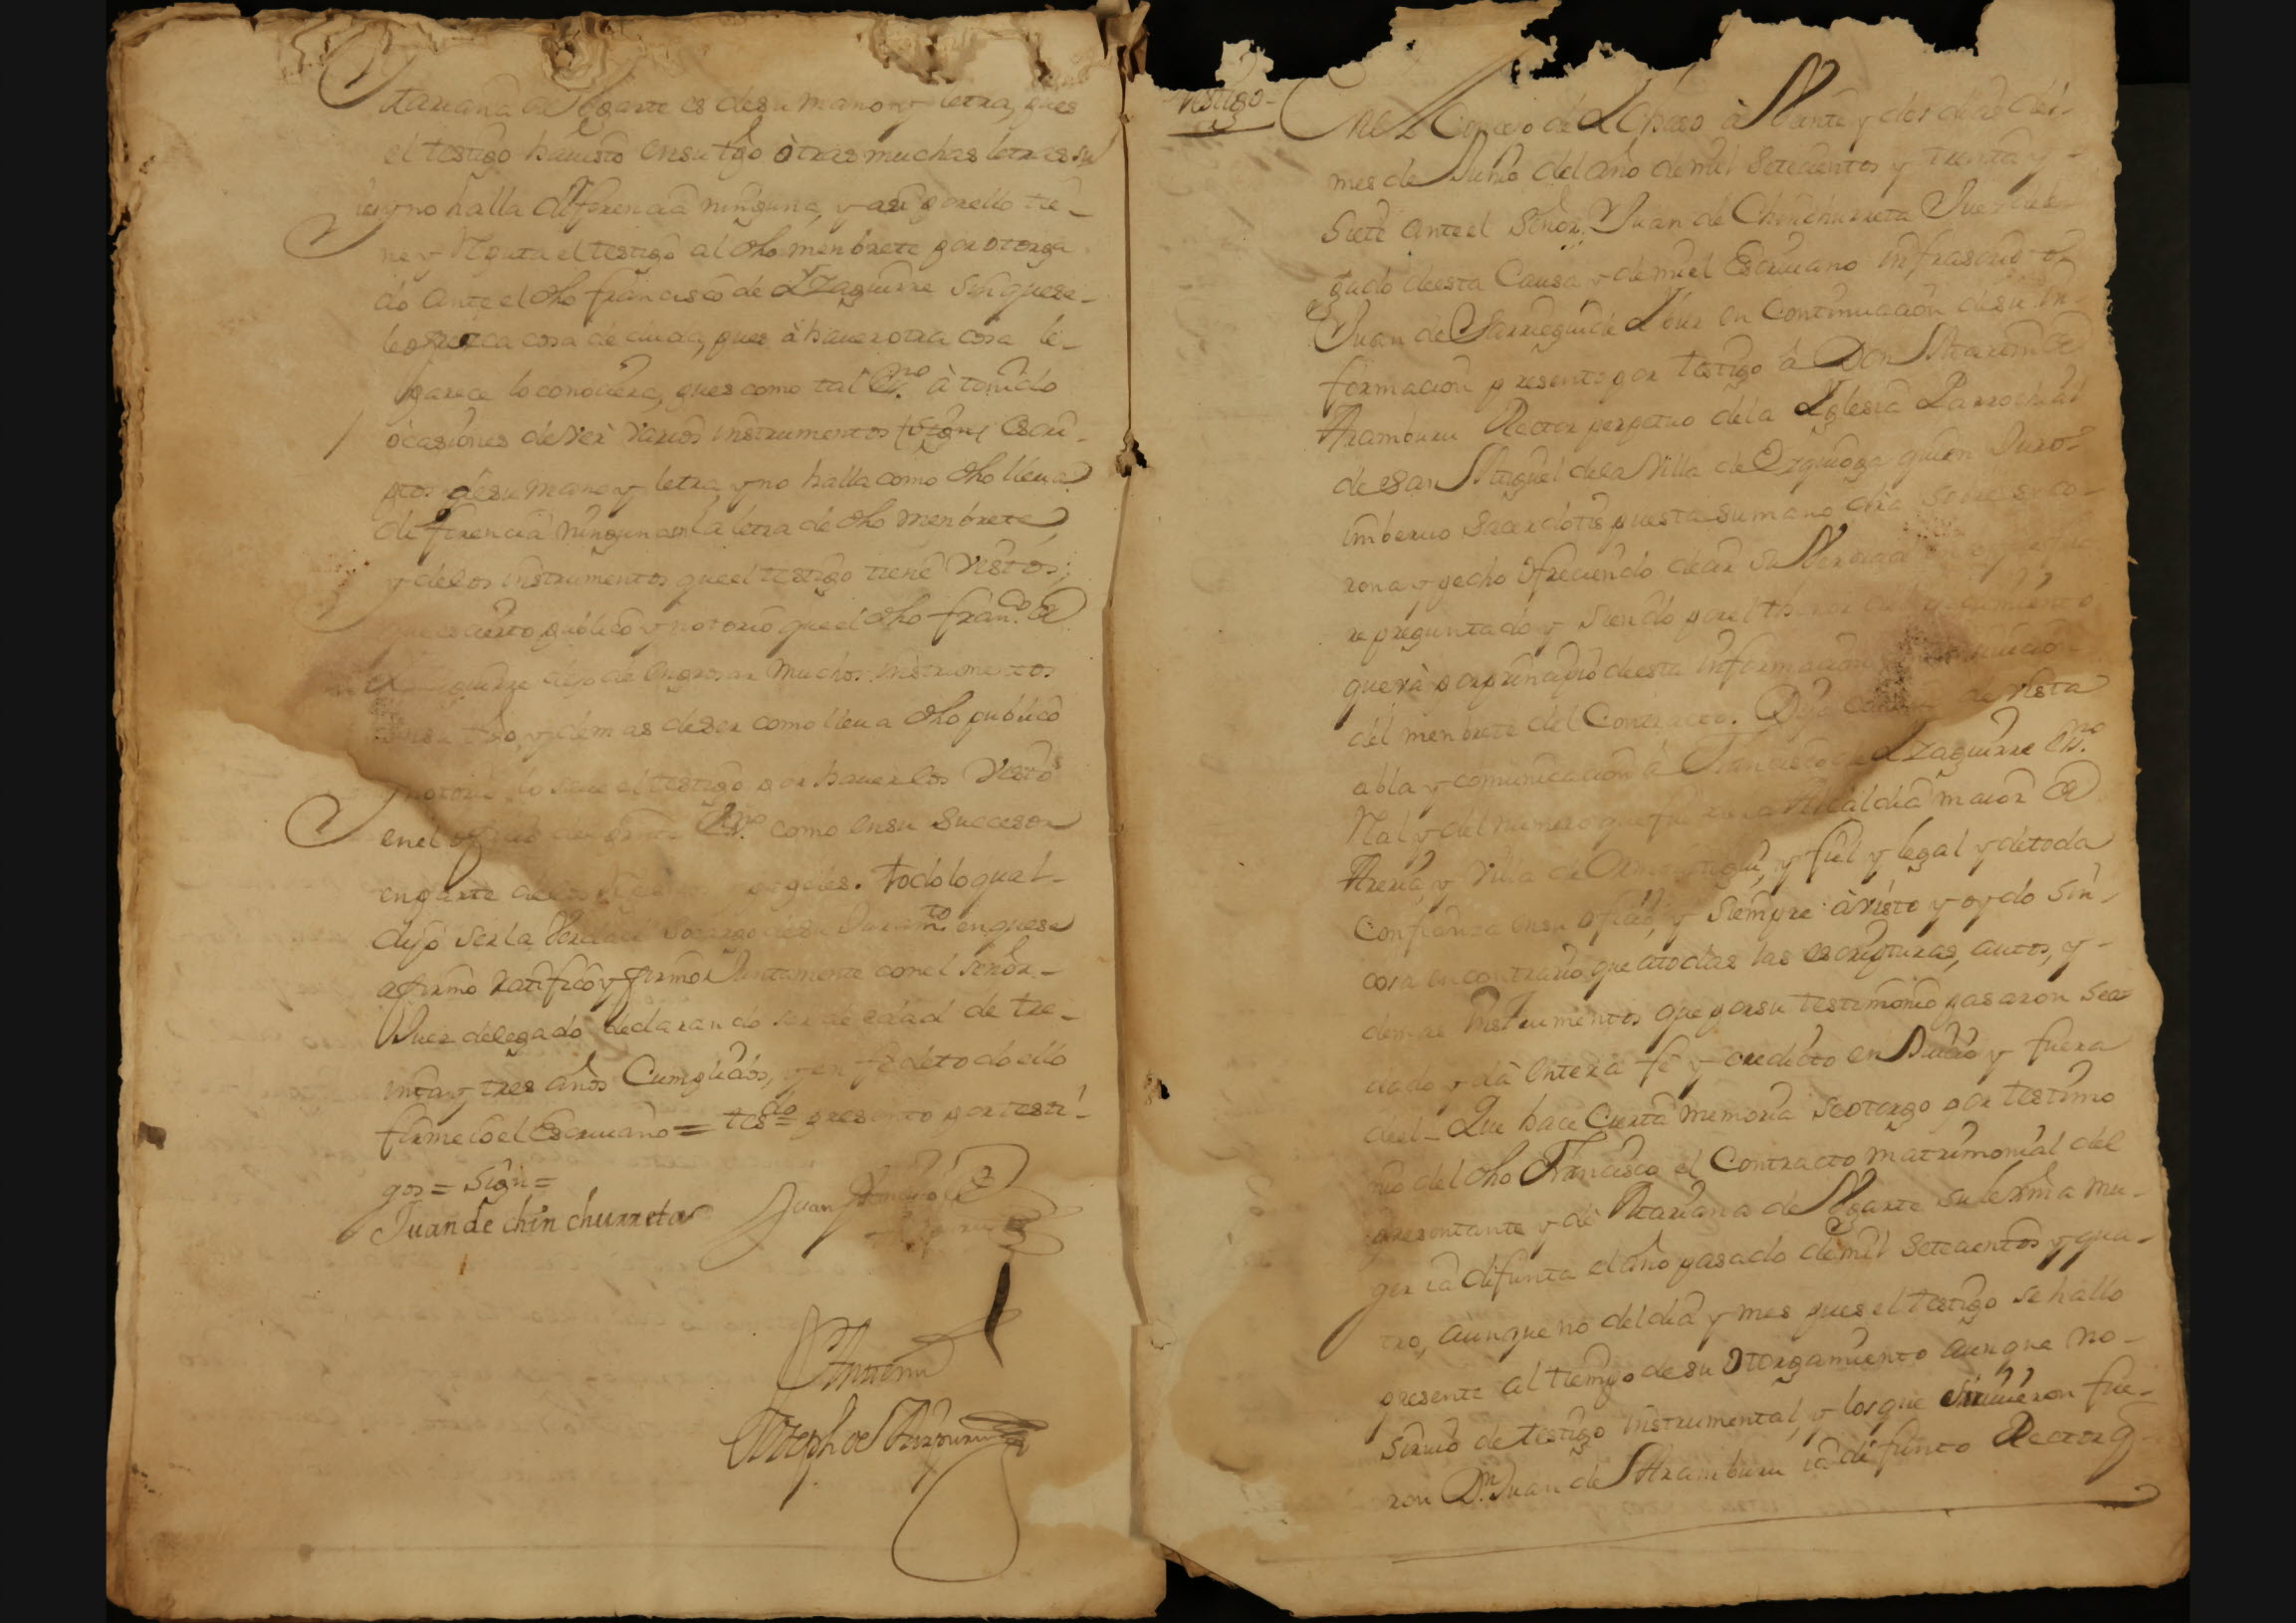 Mariana de Ugarte es de su mano y letra, pues
el testigo ha visto en su tpo otras muchas letras su
ias y no halla diferencia ninguna, y asi por ello tie-
ne y Reputa el testigo al dho menbrete por otorga
do ante el dho francisco de Yzaguirre sin que se
le ofrezca cosa de duda, pues à haver otra cosa le-
parece lo conociera, pues como tal Esno à tenido
ócasiones de ver varios instrumentos escri-
ptos de su mano y letra, y no halla como dho lleua
diferencia ninguna en la letra de dho menbrete,
y de los instrumentos que el testigo tiene Vistos;
que es cierto, publico y notorio que el dho franco de
dejo de engrosar muchos instrumentos
y demas de ser como lleua dho publico
notorio lo save el testigo por haverlos Visto
en el oficio de Esno como en su Succesor
en parte de papeles. todo lo qual-
dijo ser la Verdad so cargo de su Juramto en que se
afirmo ratifico y firmo Juntamente con el señor-
Juez delegado declarando ser de edad de tre-
inta y tres años Cumplidos, y en fe de todo ello
firme io el Escriuano = tesdo presento por testi-
gos = Sign=
Juan de chin churreta
Juan
Antemi
Joseph de Aramburu
testigo-
En el Concejo de Ychaso à Veinte y dos dias del-
mes de Junio del año de mil Setecientos y treinta y-
Siete ante el Señor Juan de Chinchurreta Juez dele-
gado de esta Causa y de mi el Escriuano infrascripto
Juan de Sarriegui de en Continuacion de su in-
formacion presento por testigo à Don Martin de
Aramburu Rector perpetuo de la Yglesia Parrochial
de San Miguel de la Villa de Ezquioga quien Juro
imberuo sacerdotis puesta su mano dra sobre su co-
rona y pecho ofreciendo decir su Verdad
re preguntado y siendo por el thenor del pedimiento
que và por principio de esta informacion
del menbrete del Contracto. Dijo de vista
abla y comunicacion à Francisco de Yzaguirre Esno
Rl y del numero que fue de la Alcaldia maior de
Areria, y Villa de y fiel y legal y de toda
Confianza en su oficio, y siempre à visto y oydo sin-
cosa en contrario que à todas las escripturas, autos, y-
demas Instrumentos que por su testimonio pasaron se à
dado y dà entera fe y credito en Juicio y fuera
de el- Que hace Cierta memoria se otorgo por testimo
nio del dho Francisco el Contracto matrimonial del
presentante y de Mariana de Ugarte su lexma mu-
ger ia difunta el año pasado de mil Setecientos y qua-
tro, aunque no del dia y mes pues el testigo se hallo
presente al tiempo de su Otorgamiento aunque no-
siruio de testigo instrumental, y los que siruieron fue-
ron Dn Juan de Aramburu ia difunto Rector q